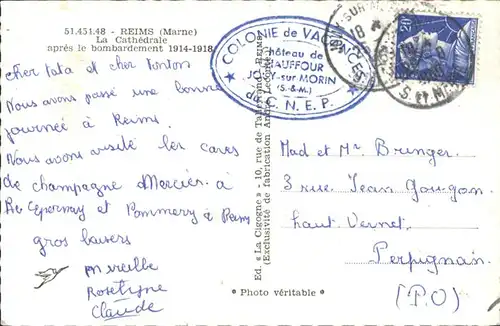 51.451.48 - REIMS (Marne)
La Cathédrale
après le bombardement 1914-1918
Cher tata et cher tonton
Nous avons passé une bonne
journée à Reims.
Nous avons visité les caves
de champagne Mercier à
Epernay et Pommery à Reims
gros baisers
mireille
Rose
Claude
COLONIE de VACANCES
Château de
CHAUFFOUR
JOUY-sur-MORIN
(S.&M.)
du C. N. E. P.
Ed. « La Cigogne » - 10, rue de REIMS
(Exclusivité de fabrication André Leconte)
* Photo véritable *
20
Mad et Mr Bringer
3 rue Jean Goujon
haut Vernet
Perpignan
(P.O)